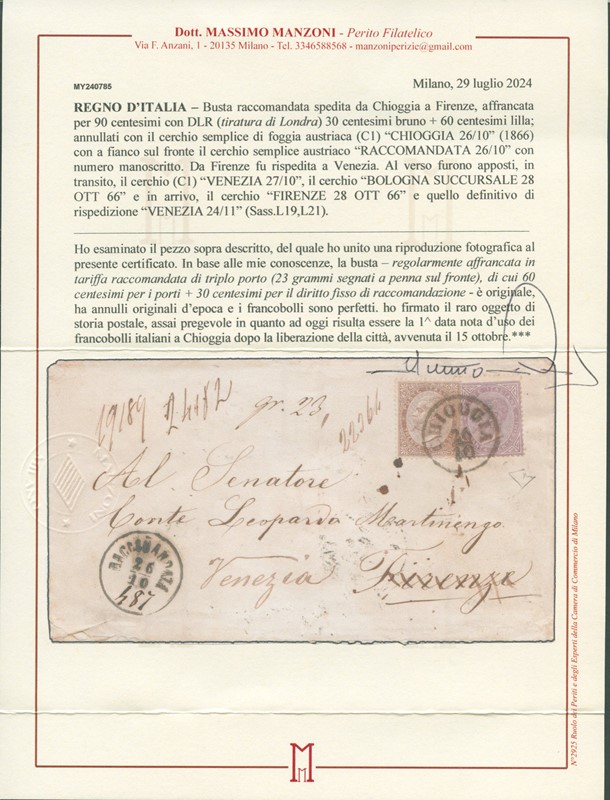 Dott. MASSIMO MANZONI - Perito Filatelico
Via F. Anzani, 1 - 20135 Milano - Tel. 3346588568 - manzoniperizie@gmail.com
MY240785
Milano, 29 luglio 2024
REGNO D'ITALIA – Busta raccomandata spedita da Chioggia a Firenze, affrancata
per 90 centesimi con DLR (tiratura di Londra) 30 centesimi bruno + 60 centesimi lilla;
annullati con il cerchio semplice di foggia austriaca (C1) “CHIOGGIA 26/10” (1866)
con a fianco sul fronte il cerchio semplice austriaco “RACCOMANDATA 26/10” con
numero manoscritto. Da Firenze fu rispedita a Venezia. Al verso furono apposti, in
transito, il cerchio (C1) “VENEZIA 27/10”, il cerchio “BOLOGNA SUCCURSALE 28
OTT 66” e in arrivo, il cerchio “FIRENZE 28 OTT 66” e quello definitivo di
rispedizione “VENEZIA 24/11” (Sass.L19,L21).
Ho esaminato il pezzo sopra descritto, del quale ho unito una riproduzione fotografica al
presente certificato. In base alle mie conoscenze, la busta – regolarmente affrancata in
tariffa raccomandata di triplo porto (23 grammi segnati a penna sul fronte), di cui 60
centesimi per i porti + 30 centesimi per il diritto fisso di raccomandazione - è originale,
ha annulli originali d'epoca e i francobolli sono perfetti. ho firmato il raro oggetto di
storia postale, assai pregevole in quanto ad oggi risulta essere la 1^ data nota d'uso dei
francobolli italiani a Chioggia dopo la liberazione della città, avvenuta il 15 ottobre.***
19189 24182 gr. 23, 22364
CHIOGGIA
26
10
Al Senatore
Conte Leopardo Martinengo
Venezia Firenze
RACCOMANDATA
26
10
487
N°2925 Ruolo dei Periti e degli Esperti della Camera di Commercio di Milano
M